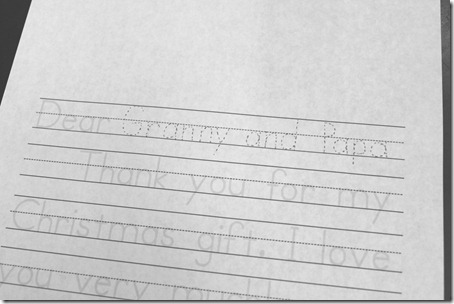 Dear Granny and Papa
Thank you for my
Christmas gift. I love
you very much